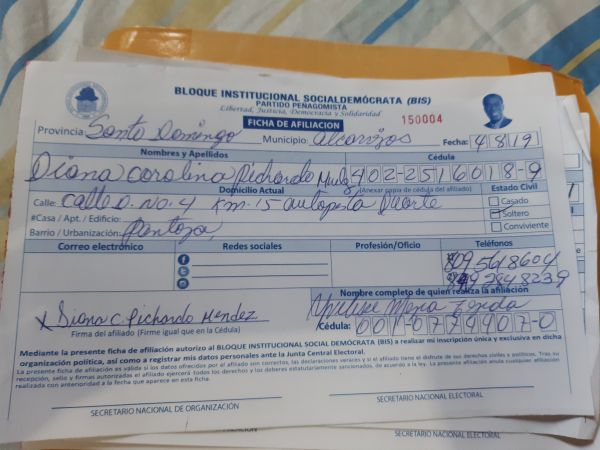 BLOQUE INSTITUCIONAL SOCIALDEMÓCRATA (BIS)
PARTIDO PENAGOMISTA
Libertad, Justicia, Democracia y Solidaridad
FICHA DE AFILIACION 150004
Provincia: Santo Domingo Municipio: Alcarrizos Fecha: 4/8/19
Nombres y Apellidos Cédula
Diana Carolina Pichardo 402-2516018-9
Domicilio Actual (Anexar copia de cédula del afiliado) Estado Civil
Calle: Calle D. No. 4 Km-15 autopista Duarte Casado
#Casa / Apt. / Edificio: Soltero
Barrio / Urbanización: Pantoja Conviviente
Correo electrónico Redes sociales Profesión/Oficio Teléfonos
809 5648604
8239
Nombre completo de quien realiza la afiliación
X Diana C. Pichardo Mendez
Firma del afiliado (Firme igual que en la Cédula) Cédula: 001-0774907-0
Mediante la presente ficha de afiliación autorizo al BLOQUE INSTITUCIONAL SOCIAL DEMÓCRATA (BIS) a realizar mi inscripción única y exclusiva en dicha
organización política, así como a registrar mis datos personales ante la Junta Central Electoral.
La presente ficha de afiliación es válida si los datos ofrecidos por el afiliado son correctos, las declaraciones veraces y si el afiliado tiene el disfrute de sus derechos civiles y políticos. Tras su
recepción, sello y firmas autorizadas el afiliado ejercerá todos los derechos y los deberes estatutariamente sancionados, de acuerdo a la ley. La presente afiliación anula cualquier afiliación
realizada con anterioridad a la fecha que aparece en esta ficha.
SECRETARIO NACIONAL DE ORGANIZACIÓN SECRETARIO NACIONAL ELECTORAL
SECRETARIO NACIONAL ELECTORAL